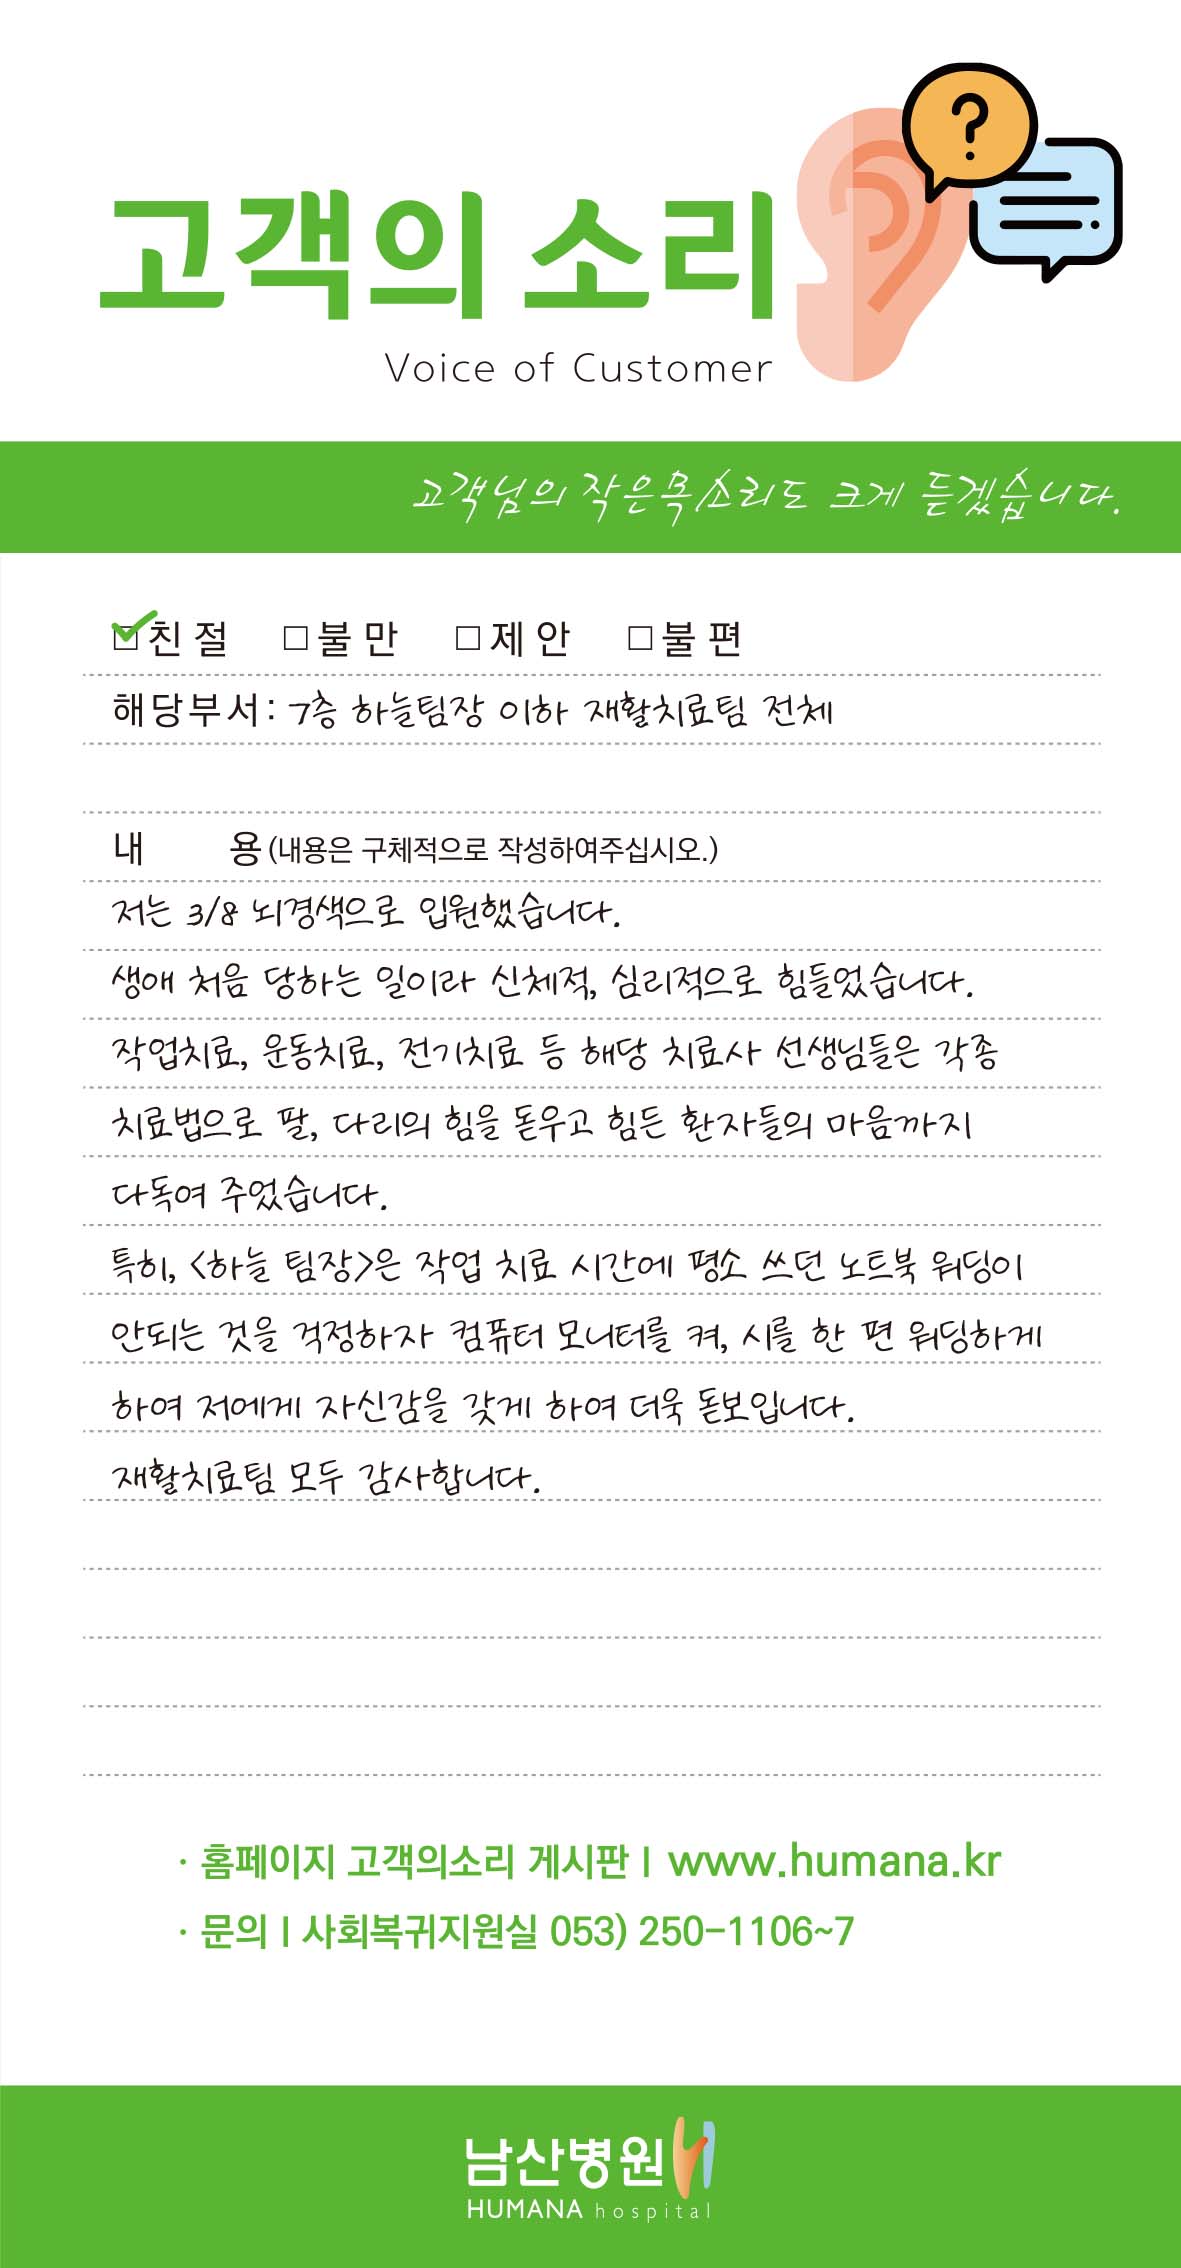 고객의 소리
?
Voice of Customer
고객님의 작은목소리도 크게 듣겠습니다.
☑친절 □불만 □제안 □불편
해당부서: 7층 하늘팀장 이하 재활치료팀 전체
내 용(내용은 구체적으로 작성하여주십시오.)
저는 3/8 뇌경색으로 입원했습니다.
생애 처음 당하는 일이라 신체적, 심리적으로 힘들었습니다.
작업치료, 운동치료, 전기치료 등 해당 치료사 선생님들은 각종
치료법으로 팔, 다리의 힘을 돋우고 힘든 환자들의 마음까지
다독여 주었습니다.
특히, <하늘 팀장>은 작업 치료 시간에 평소 쓰던 노트북 워딩이
안되는 것을 걱정하자 컴퓨터 모니터를 켜, 시를 한 편 워딩하게
하여 저에게 자신감을 갖게 하여 더욱 돋보입니다.
재활치료팀 모두 감사합니다.
· 홈페이지 고객의소리 게시판 | www.humana.kr
· 문의 | 사회복귀지원실 053) 250-1106~7
남산병원
HUMANA hospital